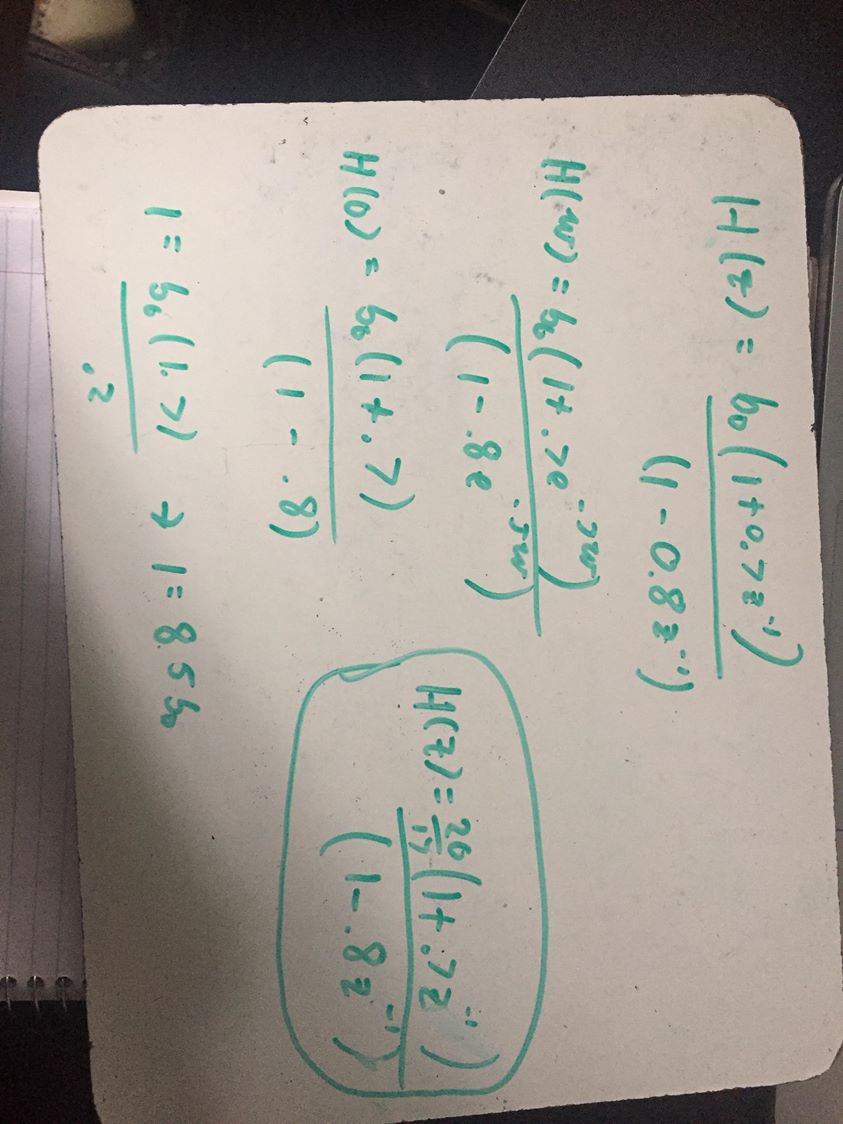 H(z) = b₀(1+0.7z⁻¹)
(1-0.8z⁻¹)
H(w) = b₀(1+.7e^-jw)
(1-.8e^-jw)
H(0) = b₀(1+.7)
(1-.8)
1 = b₀(1.7) → 1=8.5b₀
.2
H(z) = (1+.7z⁻¹)
(1-.8z⁻¹)